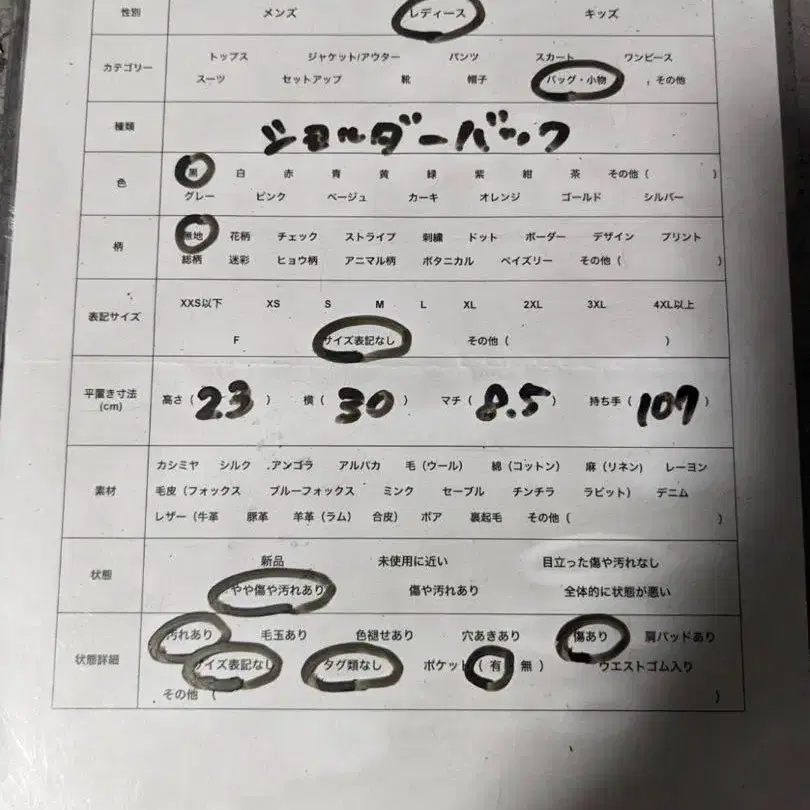 性別 メンズ レディース キッズ
カテゴリー トップス ジャケット/アウター パンツ スカート ワンピース
スーツ セットアップ 靴 帽子 バッグ・小物 , その他
種類 ショルダーバック
色 黒 白 赤 青 黄 緑 紫 紺 茶 その他 ( )
グレー ピンク ベージュ カーキ オレンジ ゴールド シルバー
柄 無地 花柄 チェック ストライプ 刺繍 ドット ボーダー デザイン プリント
総柄 迷彩 ヒョウ柄 アニマル柄 ボタニカル ペイズリー その他 ( )
表記サイズ XXS以下 XS S M L XL 2XL 3XL 4XL以上
F サイズ表記なし その他 ( )
平置き寸法 (cm) 高さ ( 23 ) 横 ( 30 ) マチ ( 8.5 ) 持ち手 ( 107 )
素材 カシミヤ シルク .アンゴラ アルパカ 毛 (ウール) 綿 (コットン) 麻 (リネン) レーヨン
毛皮 (フォックス ブルーフォックス ミンク セーブル チンチラ ラビット) デニム
レザー (牛革 豚革 羊革 (ラム) 合皮) ボア 裏起毛 その他 ( )
状態 新品 未使用に近い 目立った傷や汚れなし
やや傷や汚れあり 傷や汚れあり 全体的に状態が悪い
状態詳細 汚れあり 毛玉あり 色褪せあり 穴あきあり 傷あり 肩パッドあり
サイズ表記なし タグ類なし ポケット ( 有 無 ) ウエストゴム入り
その他 ( )